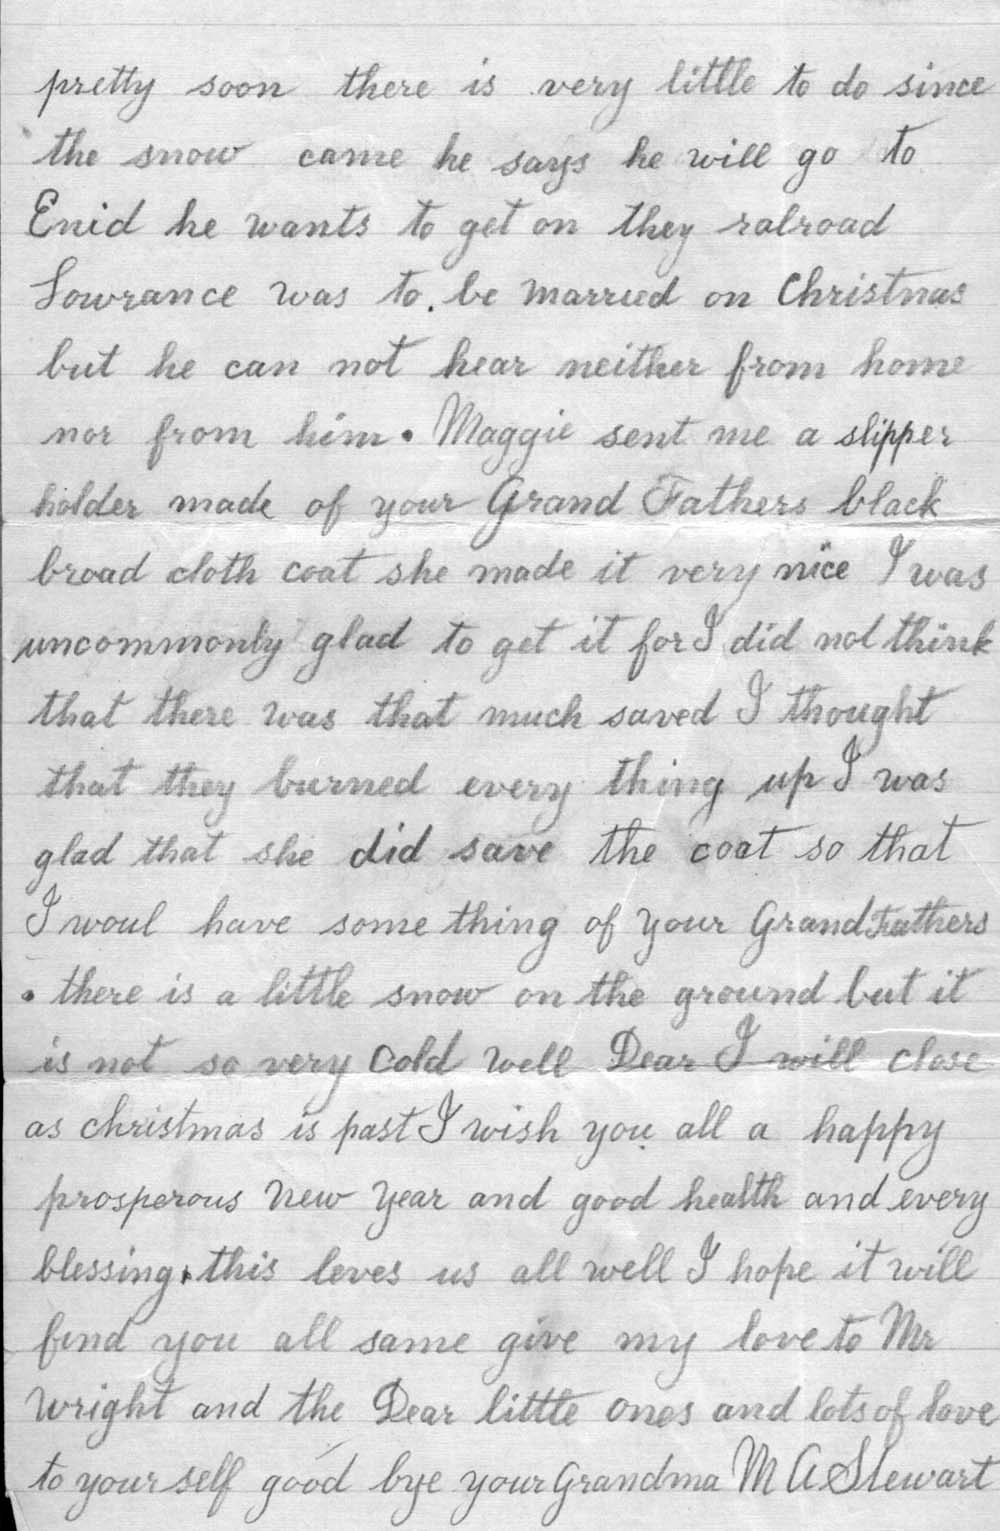 pretty soon there is very little to do since
the snow came he says he will go to
Enid he wants to get on they ralroad
Lowrance was to. be married on Christmas
but he can not hear neither from home
nor from him. Maggie sent me a slipper
holder made of your Grand Fathers black
broad cloth coat she made it very nice I was
uncommonly glad to get it for I did not think
that there was that much saved I thought
that they burned every thing up I was
glad that she did save the coat so that
I woul have some thing of your Grand Fathers
. there is a little snow on the ground but it
is not so very cold well Dear I will close
as christmas is past I wish you all a happy
prosperous new year and good health and every
blessing. this leves us all well I hope it will
find you all same give my love to Mr
Wright and the Dear little ones and lots of love
to your self good bye your Grandma M A Stewart